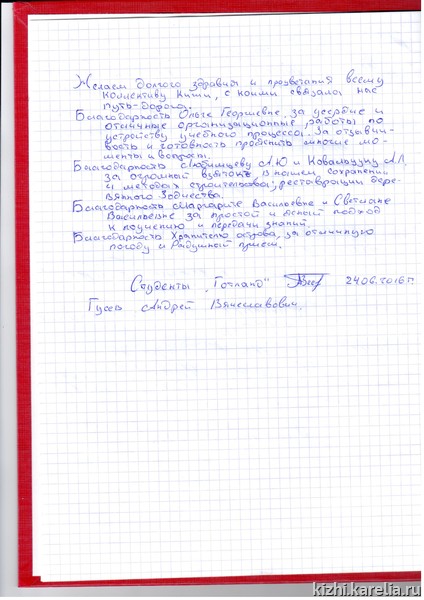 Желаем долгого здравия и процветания всему
коллективу Кижи, с коими связала нас
путь-дорога.
Благодарность Ольге Георгиевне за усердие и
отличные организационные работы по
устройству учебного процесса. За отзывчи-
вость и готовность прояснить многие мо-
менты и вопросы.
Благодарность Любимцеву А.Ю и Ковальчуку А.Л
за огромный в нашем, сохранении
и методах строительства, реставрации дере-
вянного зодчества.
Благодарность Маргарите Васильевне и Светлане
Васильевне за простой и ясный подход
к поучению и передачи знаний.
Благодарность Хранителю острова, за отличную
погоду и Радушный прием.
Студенты "Готланд" 24.06.2016 г
Гусев Андрей Вячеславович.
kizhi.karelia.ru